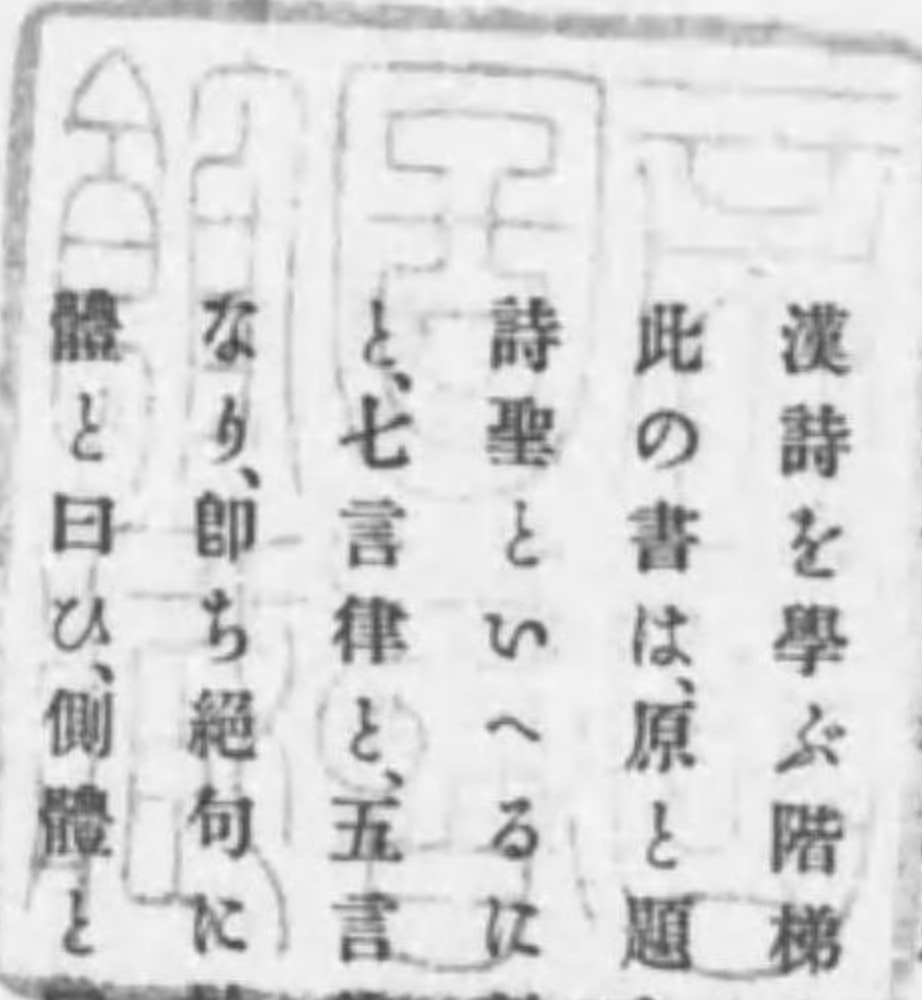 漢詩を學ぶ階梯
此の書は、原と題
詩聖といへるに
と、七言律と、五言
なり、卽ち絕句に
體と曰ひ、側體と